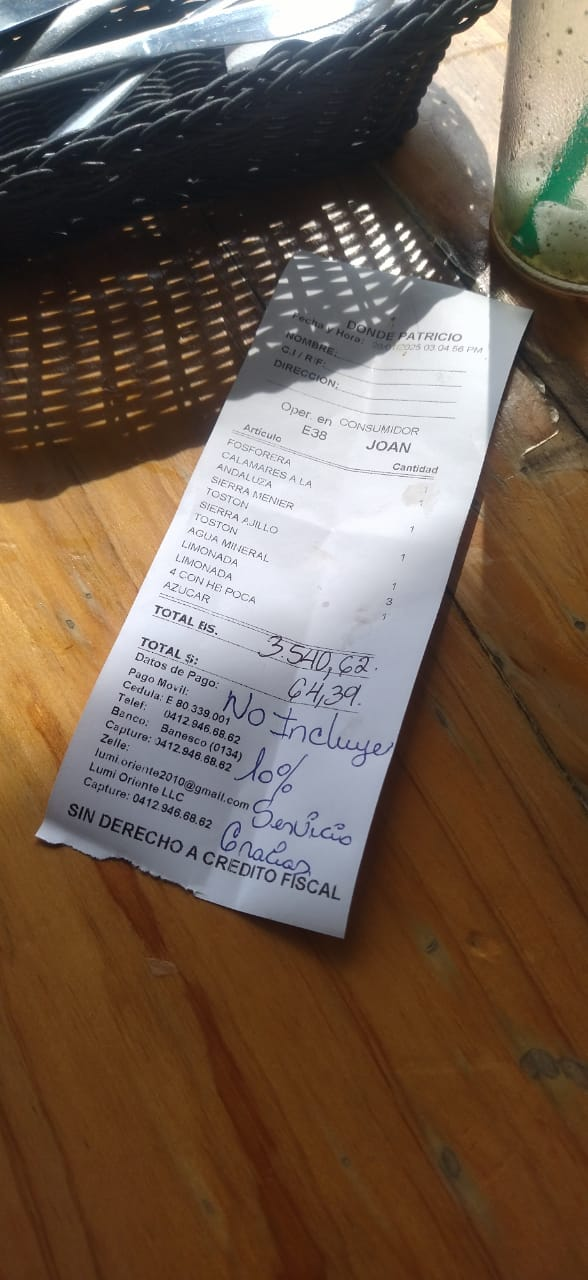 DONDE PATRICIO
Fecha y Hora: 2025 03:04:56 PM
NOMBRE:
C.I / RIF:
DIRECCION:
Oper. en CONSUMIDOR
E38 JOAN
Articulo Cantidad
FOSFORERA 1
CALAMARES A LA 1
ANDALUZA
SIERRA MENIER 1
TOSTON
SIERRA AJILLO 1
TOSTON
AGUA MINERAL 1
LIMONADA 3
LIMONADA 1
4 CON HB POCA
AZUCAR
TOTAL BS. 3.540,62.
TOTAL $: 64,39.
Datos de Pago:
Pago Movil:
Cedula: E 80 339.001
Telef: 0412.946.68.62
Banco: Banesco (0134)
Capture: 0412.946.68.62
Zelle:
lumi.oriente2010@gmail.com
Lumi Oriente LLC
Capture: 0412.946.68.62
No Incluye
10%
Servicio
Gracias
SIN DERECHO A CREDITO FISCAL